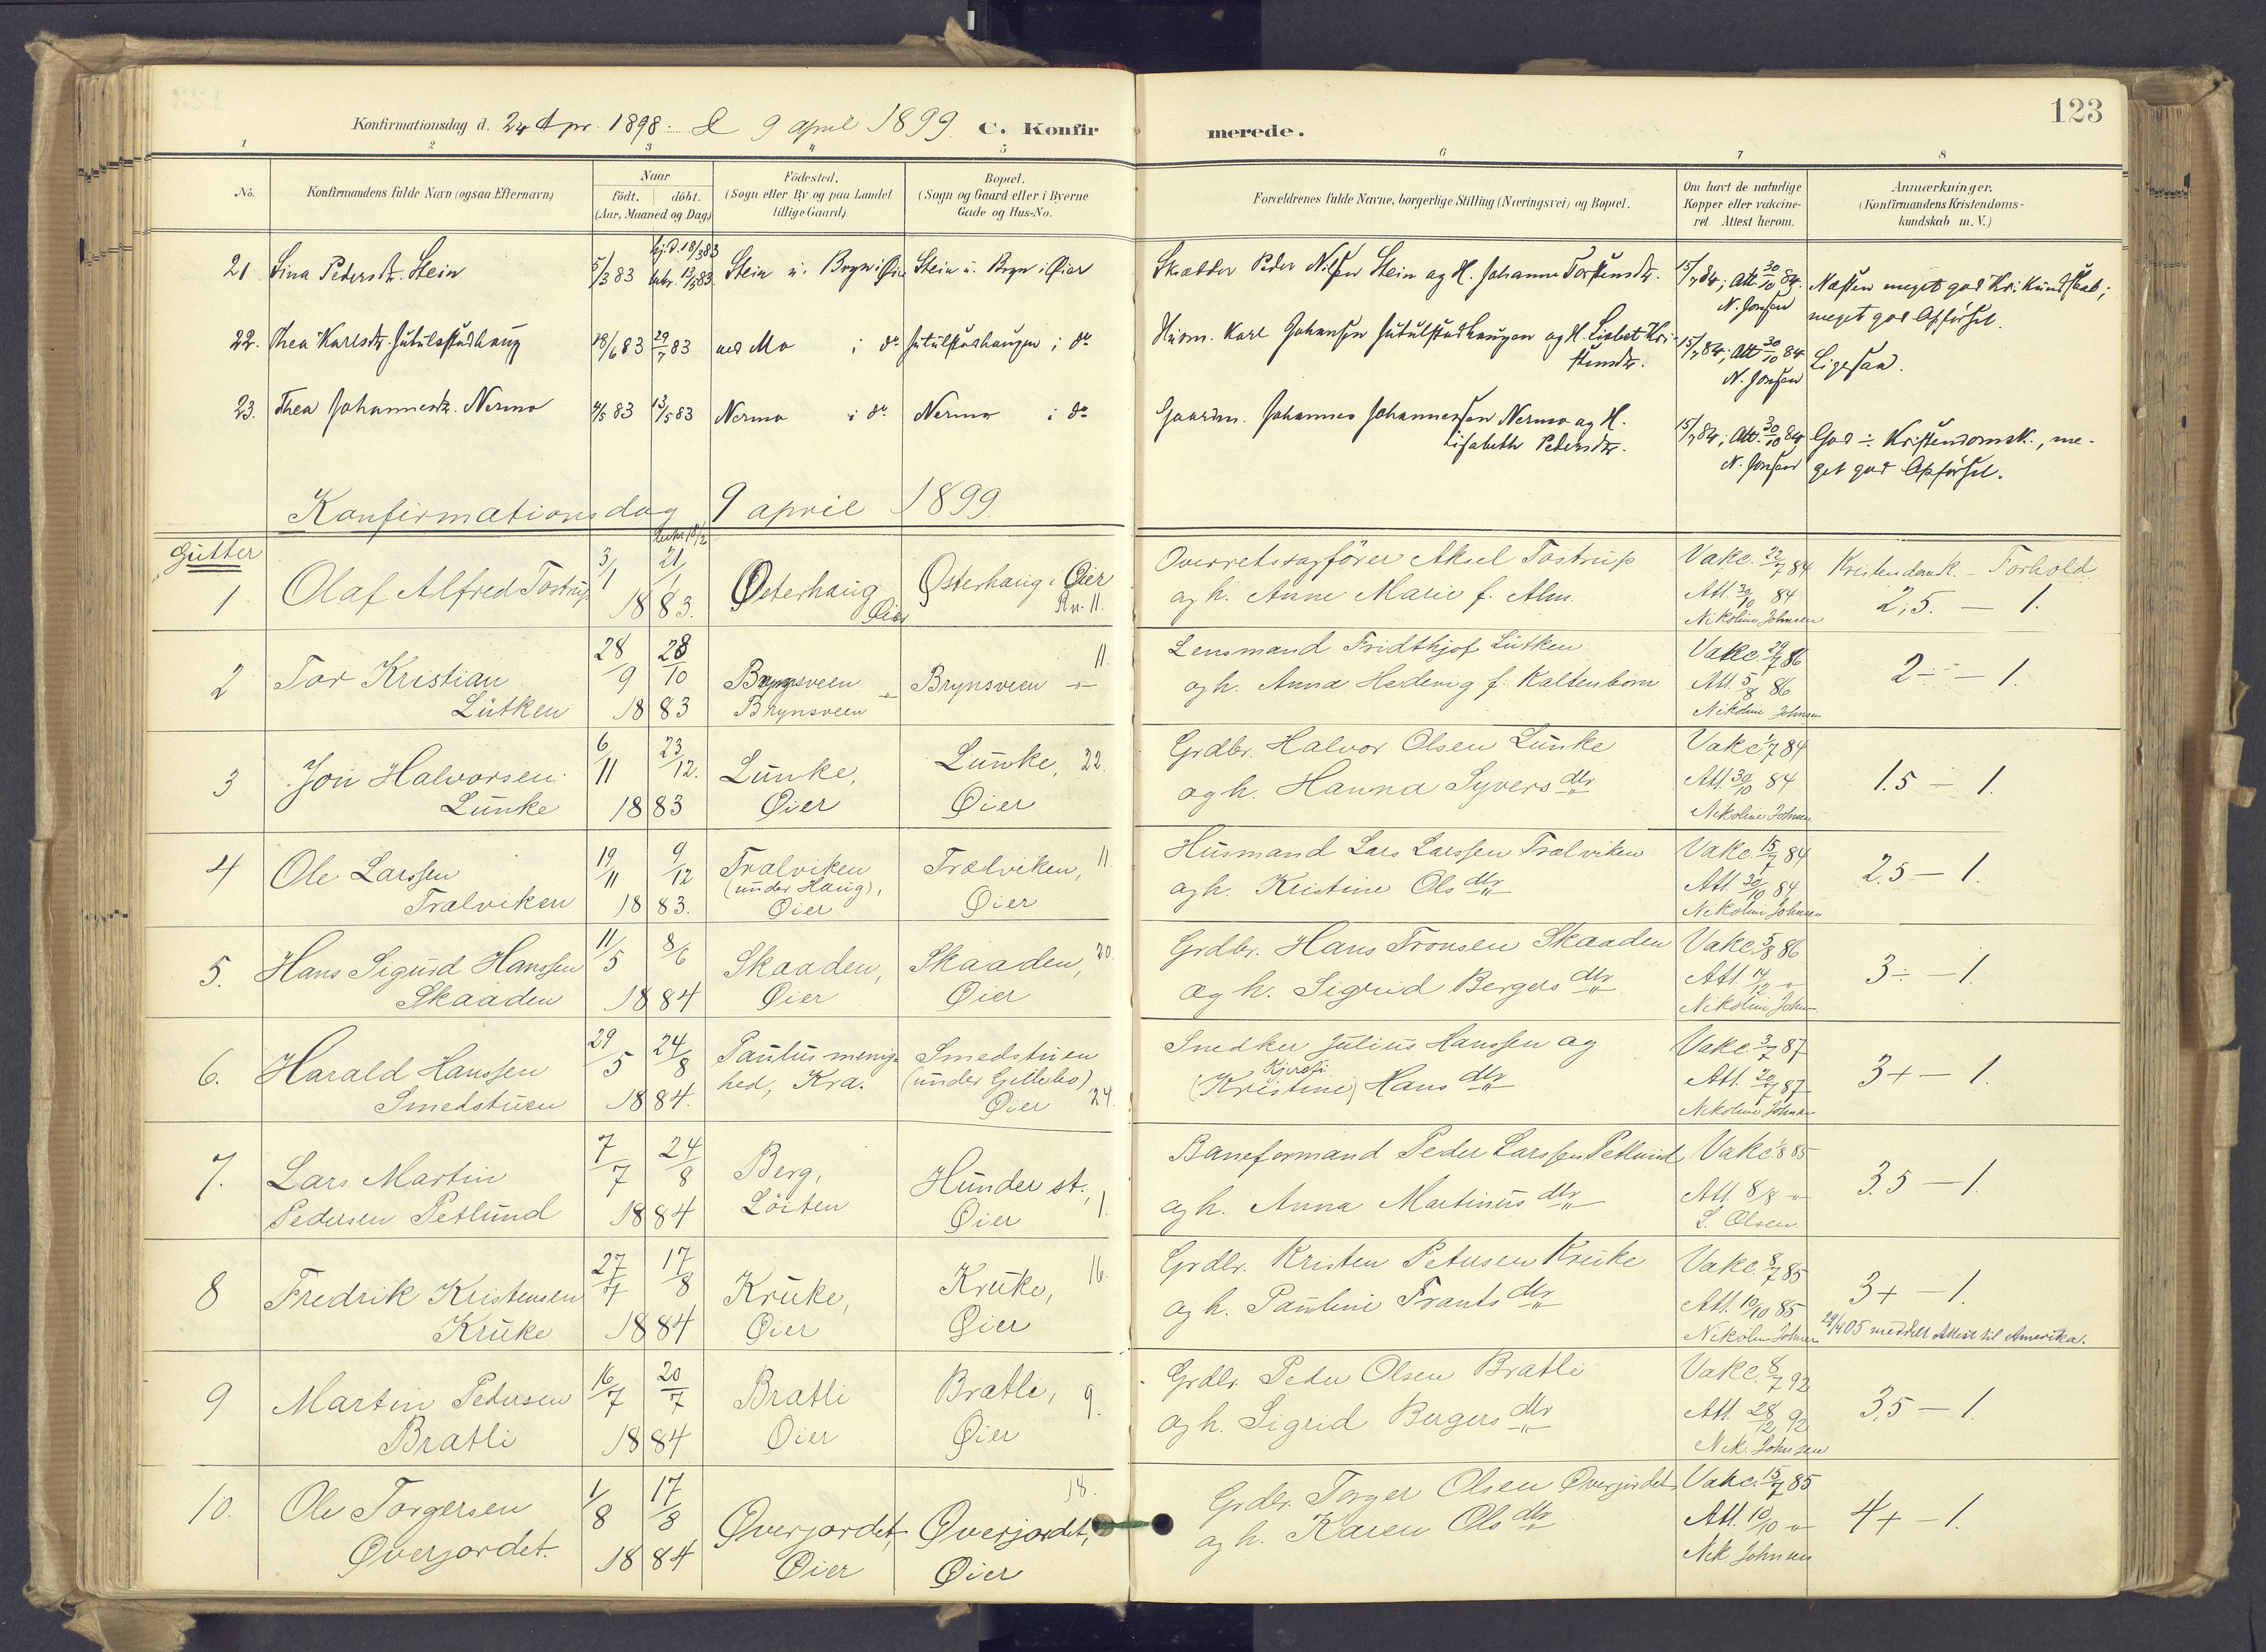 123
Konfirmationsdag d. 24 Apr. 1898. & 9 april 1899. C. Konfirmerede.
1 2 3 4 5 6 7 8
No. Konfirmandens fulde Navn (ogsaa Efternavn) Naar födt. döbt. (Aar, Maaned og Dag) Födested. (Sogn eller By og paa Landet tillige Gaard) Bopæl. (Sogn og Gaard eller i Byerne Gade og Hus-No. Forældrenes fulde Navne, borgerlige Stilling (Næringsvei) og Bopæl. Om havt de naturlige Kopper eller vakcineret. Attest herom. Anmærkninger. (Konfirmandens Kristendomskundskab m. V.)
21 Sina Pedersdtr. Stein 5/3 83 hj.d. 18/3 83 bekr. 13/5 83 Stein u. Bryn i Øier Stein u. Bryn i Øier Skrædder Peder Nilsen Stein og H. Johanne Torstensdtr. 15/7 84; Att. 30/10 84. N. Jonsen Næsten meget god Kr. Kundskab;
meget god Opförsel.
22. Thea Karlsdtr. Jutulstadhaug 28/6 83 29/7 83 ved Mo i do Jutulstadhaugen i do Husm. Karl Johansen Jutulstadhaugen og H. Lisbet Kri-
stensdtr. 15/7 84; Att 30/10 84 N. Jonsen Ligesaa.
23. Thea Johannesdtr. Nermo 4/5 83 13/5 83 Nermo i do Nermo i do Gaardm. Johannes Johannessen Nermo og H.
Lisabeth Pedersdtr. 15/7 84; Att. 30/10 84 N. Jonsen God ÷ Kristendomsk., me-
get god Opförsel.
Konfirmationsdag 9 april 1899
Gutter
1. Olaf Alfred Tostrup 3/1 21/1 1883. Østerhaug Øier Østerhaug i Øier Rn. 11. Overretssagfører Aksel Tostrup
og h. Anne Marie f. Alm. Vakc. 22/7 84
Att. 30/10 84
Nikoline Johnsen Kristendomsk. – Forhold
2,5. — 1.
2 Tor Kristian
Lütken 28/9 28/10 1883 Brynsveen
Brynsveen Brynsveen 11. Lensmand Fridthjof Lütken
og h. Anna Hedevig f. Kaltenborn Vakc. 29/7 86
Att. 5/8 86
Nikoline Johnsen 2÷ — 1.
3 Jon Halvorsen
Lunke 6/11 23/12. 1883 Lunke,
Øier Lunke, 22.
Øier Grdbr. Halvor Olsen Lunke
og h. Hanna Syversdtr Vakc. 1/7 84
Att. 30/10 84
Nikoline Johnsen 1.5 — 1.
4 Ole Larssen
Trælviken 19/11 9/12 1883. Trælviken
(under Haug),
Øier Trælviken, 11.
Øier Husmand Lars Larssen Trælviken
og h. Kristine Olsdtr Vakc. 15/7 84
Att. 30/10 84
Nikoline Johnsen 2.5 — 1.
5. Hans Sigurd Hanssen
Skaaden 11/5 8/6 1884 Skaaden,
Øier Skaaden, 20.
Øier Grdbr. Hans Tronsen Skaaden
og h. Sigrid Bergersdtr Vakc. 5/8 86
Att. 14/12 –"–
Nikoline Johnsen 3÷ — 1.
6. Harald Hanssen
Smedstuen 29/5 24/8 1884. Paulus menig-
hed, Kra. Smedstuen
(under Gillebo)
Øier 24. Snedker Julius Hanssen og
Kjersti
(Kristine) Hansdtr Vakc. 3/7 87
Att. 20/7 87
Nikoline Johnsen 3+ — 1.
7. Lars Martin
Pedersen Petlund 7/7 24/8 1884 Berg,
Löiten Hunder st.,
Øier 1. Baneformand Peder Larssen Petlund
og h. Anna Martinusdtr Vakc. 1/8 85
Att. 8/8 –"–
L. Olsen. 3.5 — 1.
8 Fredrik Kristensen
Kruke 27/7 17/8 1884 Kruke,
Øier Kruke, 16.
Øier Grdbr. Kristen Petersen Kruke
og h. Pauline Frantsdtr Vakc. 8/7 85
Att. 10/10 85
Nikoline Johnsen 3+ — 1.
29/4 05 meddelt Attest til Amerika.
9 Martin Pedersen
Bratli 16/7 20/7 1884 Bratli
Øier Bratli, 9.
Øier Grdbr. Peder Olsen Bratli
og h. Sigrid Bergersdtr Vakc. 8/7 92
Att. 28/12 92
Nik. Johnsen 3,5 — 1.
10. Ole Torgersen
Øverjordet. 1/8 17/8 1884 Øverjordet,
Øier 18.
Øverjordet,
Øier Grdbr. Torger Olsen Øverjordet
og h. Karen Olsdtr Vakc. 15/7 85
Att. 10/10 –"–
Nik Johnsen 4+ — 1.